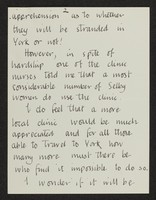 2
apprehension as to whether
they will be stranded in
York or not!
However, in spite of
hardship one of the clinic
nurses told me that a most
considerable number of Selby
women do use the clinic.
I do feel that a more
local clinic would be much
appreciated and for all those
able to travel to York, how
many more must there be
who find it impossible to do so.
I wonder if it will be